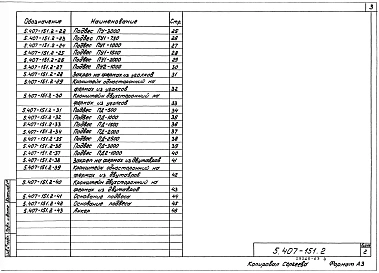 3
Обозначение Наименование Стр.
5.407-151.2-22 Подвес ПУ-3000 25
5.407-151.2-23 Подвес ПУ1-750 26
5.407-151.2-24 Подвес ПУ1-1000 27
5.407-151.2-25 Подвес ПУ1-1500 28
5.407-151.2-26 Подвес ПУ1-2000 29
5.407-151.2-27 Подвес ПУ2-1000 30
5.407-151.2-28 на фермах из уголков 31
5.407-151.2-29 Кронштейн односторонний на
фермах из уголков 32
5.407-151.2-30 Кронштейн двухсторонний на
фермах из уголков 33
5.407-151.2-31 Подвес ПД-500 34
5.407-151.2-32 Подвес ПД-1000 35
5.407-151.2-33 Подвес ПД-1500 36
5.407-151.2-34 Подвес ПД-2000 37
5.407-151.2-35 Подвес ПД-2500 38
5.407-151.2-36 Подвес ПД-3000 39
5.407-151.2-37 Подвес ПД2-1000 40
5.407-151.2-38 на фермах из двутавров 41
5.407-151.2-39 Кронштейн односторонний на
фермах из двутавров 42
5.407-151.2-40 Кронштейн двухсторонний на
фермах из двутавров 43
5.407-151.2-41 Основание подвеса 44
5.407-151.2-42 Основание подвеса 45
5.407-151.2-43 46
5.407-151.2
Лист
2
Копировал Сергеева Формат А3